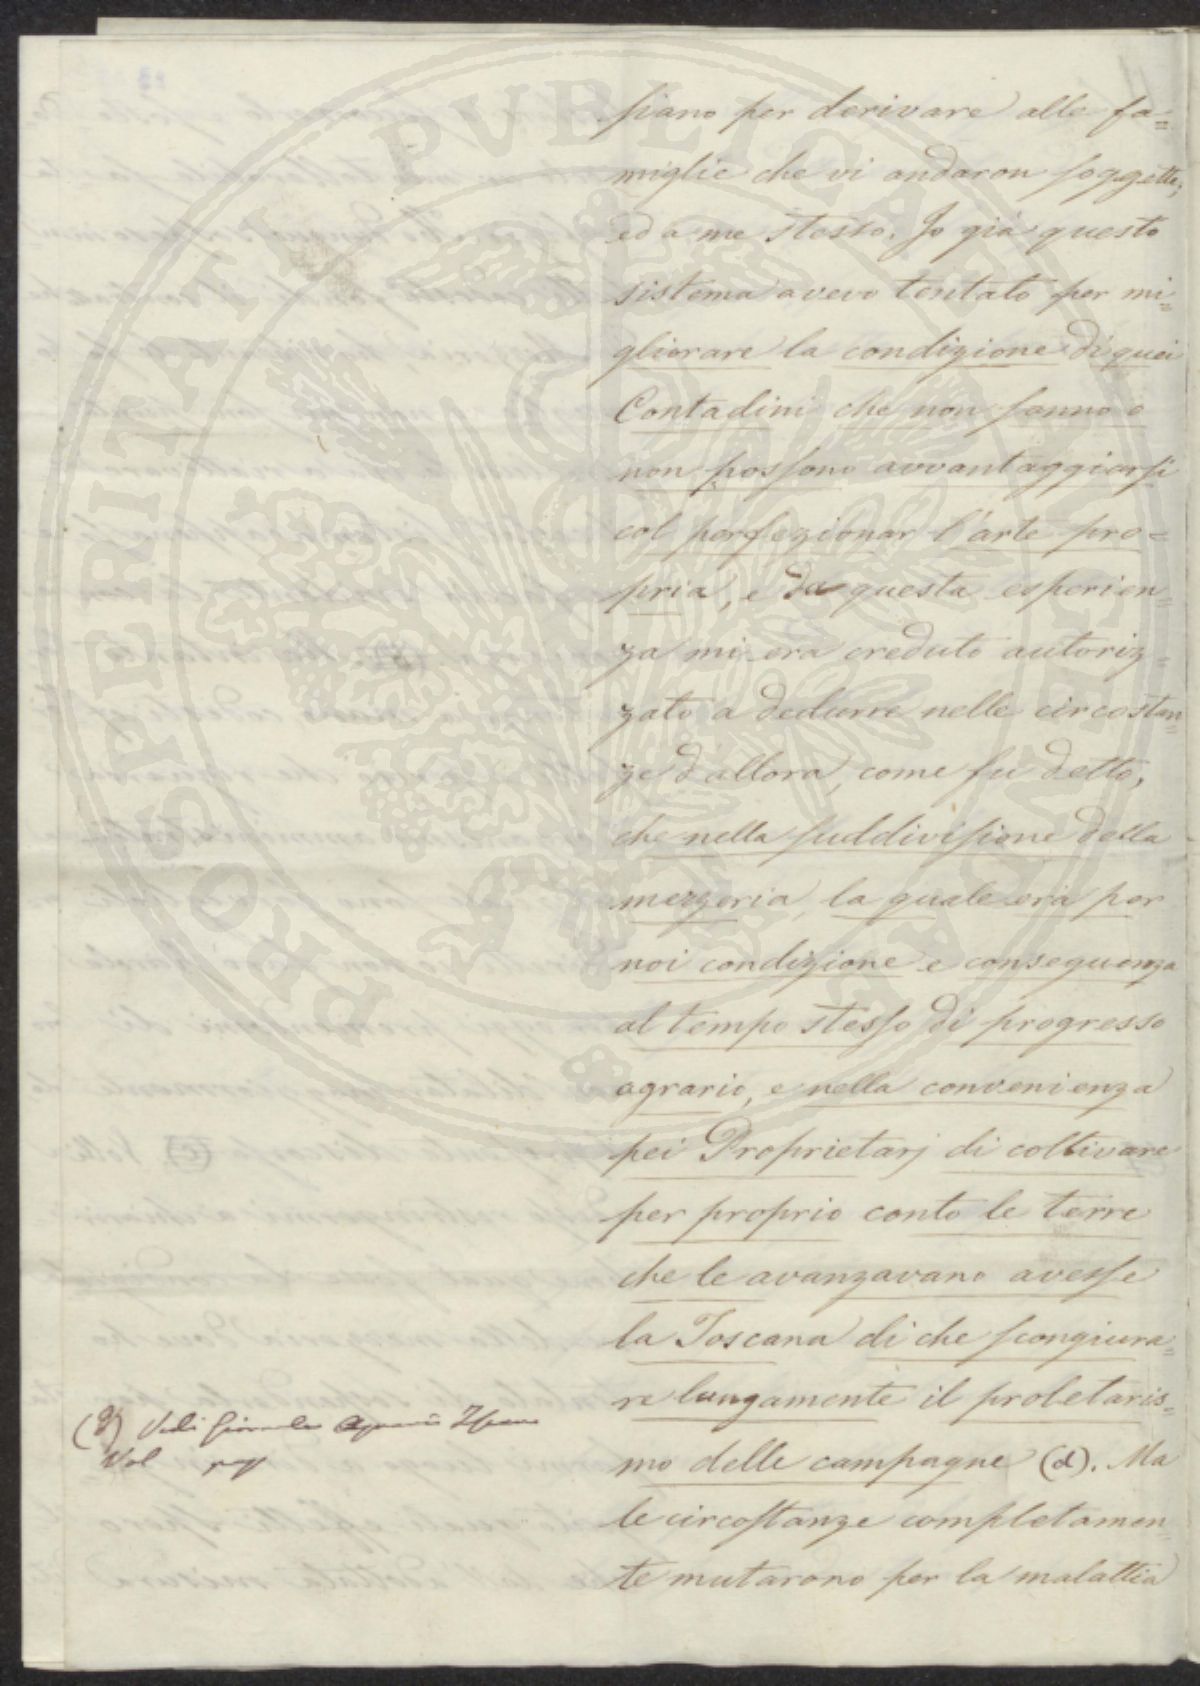 siano per derivare alle fa=
miglie che vi andaron soggette,
ed a me stesso. Io già questo
sistema avevo tentato per mi=
gliorare la condizione di quei
Contadini che non sanno e
non possono avvantaggiarsi
col perfezionar l'arte pro=
pria, e da questa esperien=
za mi era creduto autoriz=
zato a dedurre nelle circostan=
ze d'allora, come fu detto,
che nella suddivisione della
mezzeria, la quale era per
noi condizione e conseguenza
al tempo stesso di progresso
agrario, e nella convenienza
pei Proprietarj di coltivare
per proprio conto le terre
che le avanzavano avesse
la Toscana di che scongiura=
re lungamente il proletaris=
mo delle campagne (d). Ma
le circostanze completamen=
te mutarono per la malattia
(d) Vedi Giornale Agrario
Vol pag
PROSPERITATI PUBLICAE AUGENDAE